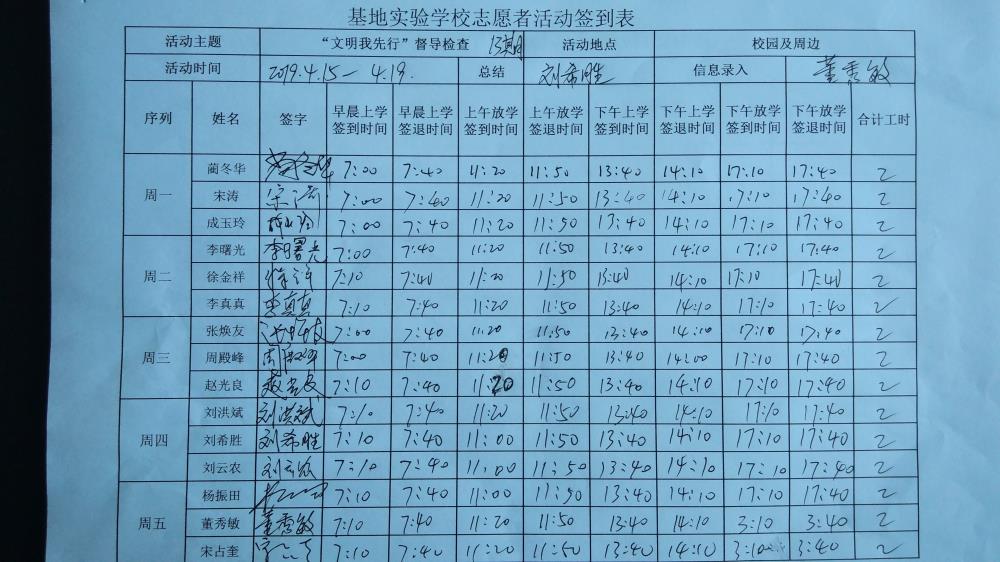 基地实验学校志愿者活动签到表
活动主题 “文明我先行”督导检查 13期 活动地点 校园及周边
活动时间 2019.4.15—4.19. 总结 刘希胜 信息录入 董秀敏
序列 姓名 签字 早晨上学签到时间 早晨上学签退时间 上午放学签到时间 上午放学签退时间 下午上学签到时间 下午上学签退时间 下午放学签到时间 下午放学签退时间 合计工时
周一 蔺冬华 7:00 7:40 11:20 11:50 13:40 14:10 17:10 17:40 2
宋涛 宋涛 7:00 7:40 11:20 11:50 13:40 14:10 17:10 17:40 2
成玉玲 7:00 7:40 11:20 11:50 13:40 14:10 17:10 17:40 2
周二 李曙光 李曙光 7:00 7:40 11:20 11:50 13:40 14:10 17:10 17:40 2
徐金祥 7:10 7:40 11:20 11:50 13:40 14:10 17:10 17:40 2
李真真 李真真 7:10 7:40 11:20 11:50 13:40 14:10 17:10 17:40 2
周三 张焕友 7:00 7:40 11:20 11:50 13:40 14:10 17:10 17:40 2
周殿峰 7:00 7:40 11:20 11:50 13:40 14:00 17:10 17:40 2
赵光良 7:10 7:40 11:20 11:50 13:40 14:10 17:10 17:40 2
周四 刘洪斌 刘洪斌 7:10 7:40 11:20 11:50 13:40 14:10 17:10 17:40 2
刘希胜 刘希胜 7:10 7:40 11:00 11:50 13:40 14:10 17:10 17:40 2
刘云农 刘云农 7:10 7:40 11:00 11:50 13:40 14:10 17:10 17:40 2
周五 杨振田 7:10 7:40 11:00 11:50 13:40 14:10 17:10 17:40 2
董秀敏 董秀敏 7:10 7:40 11:20 11:50 13:40 14:10 3:10 3:40 2
宋占奎 7:10 7:40 11:20 11:50 13:40 14:10 3:10 3:40 2